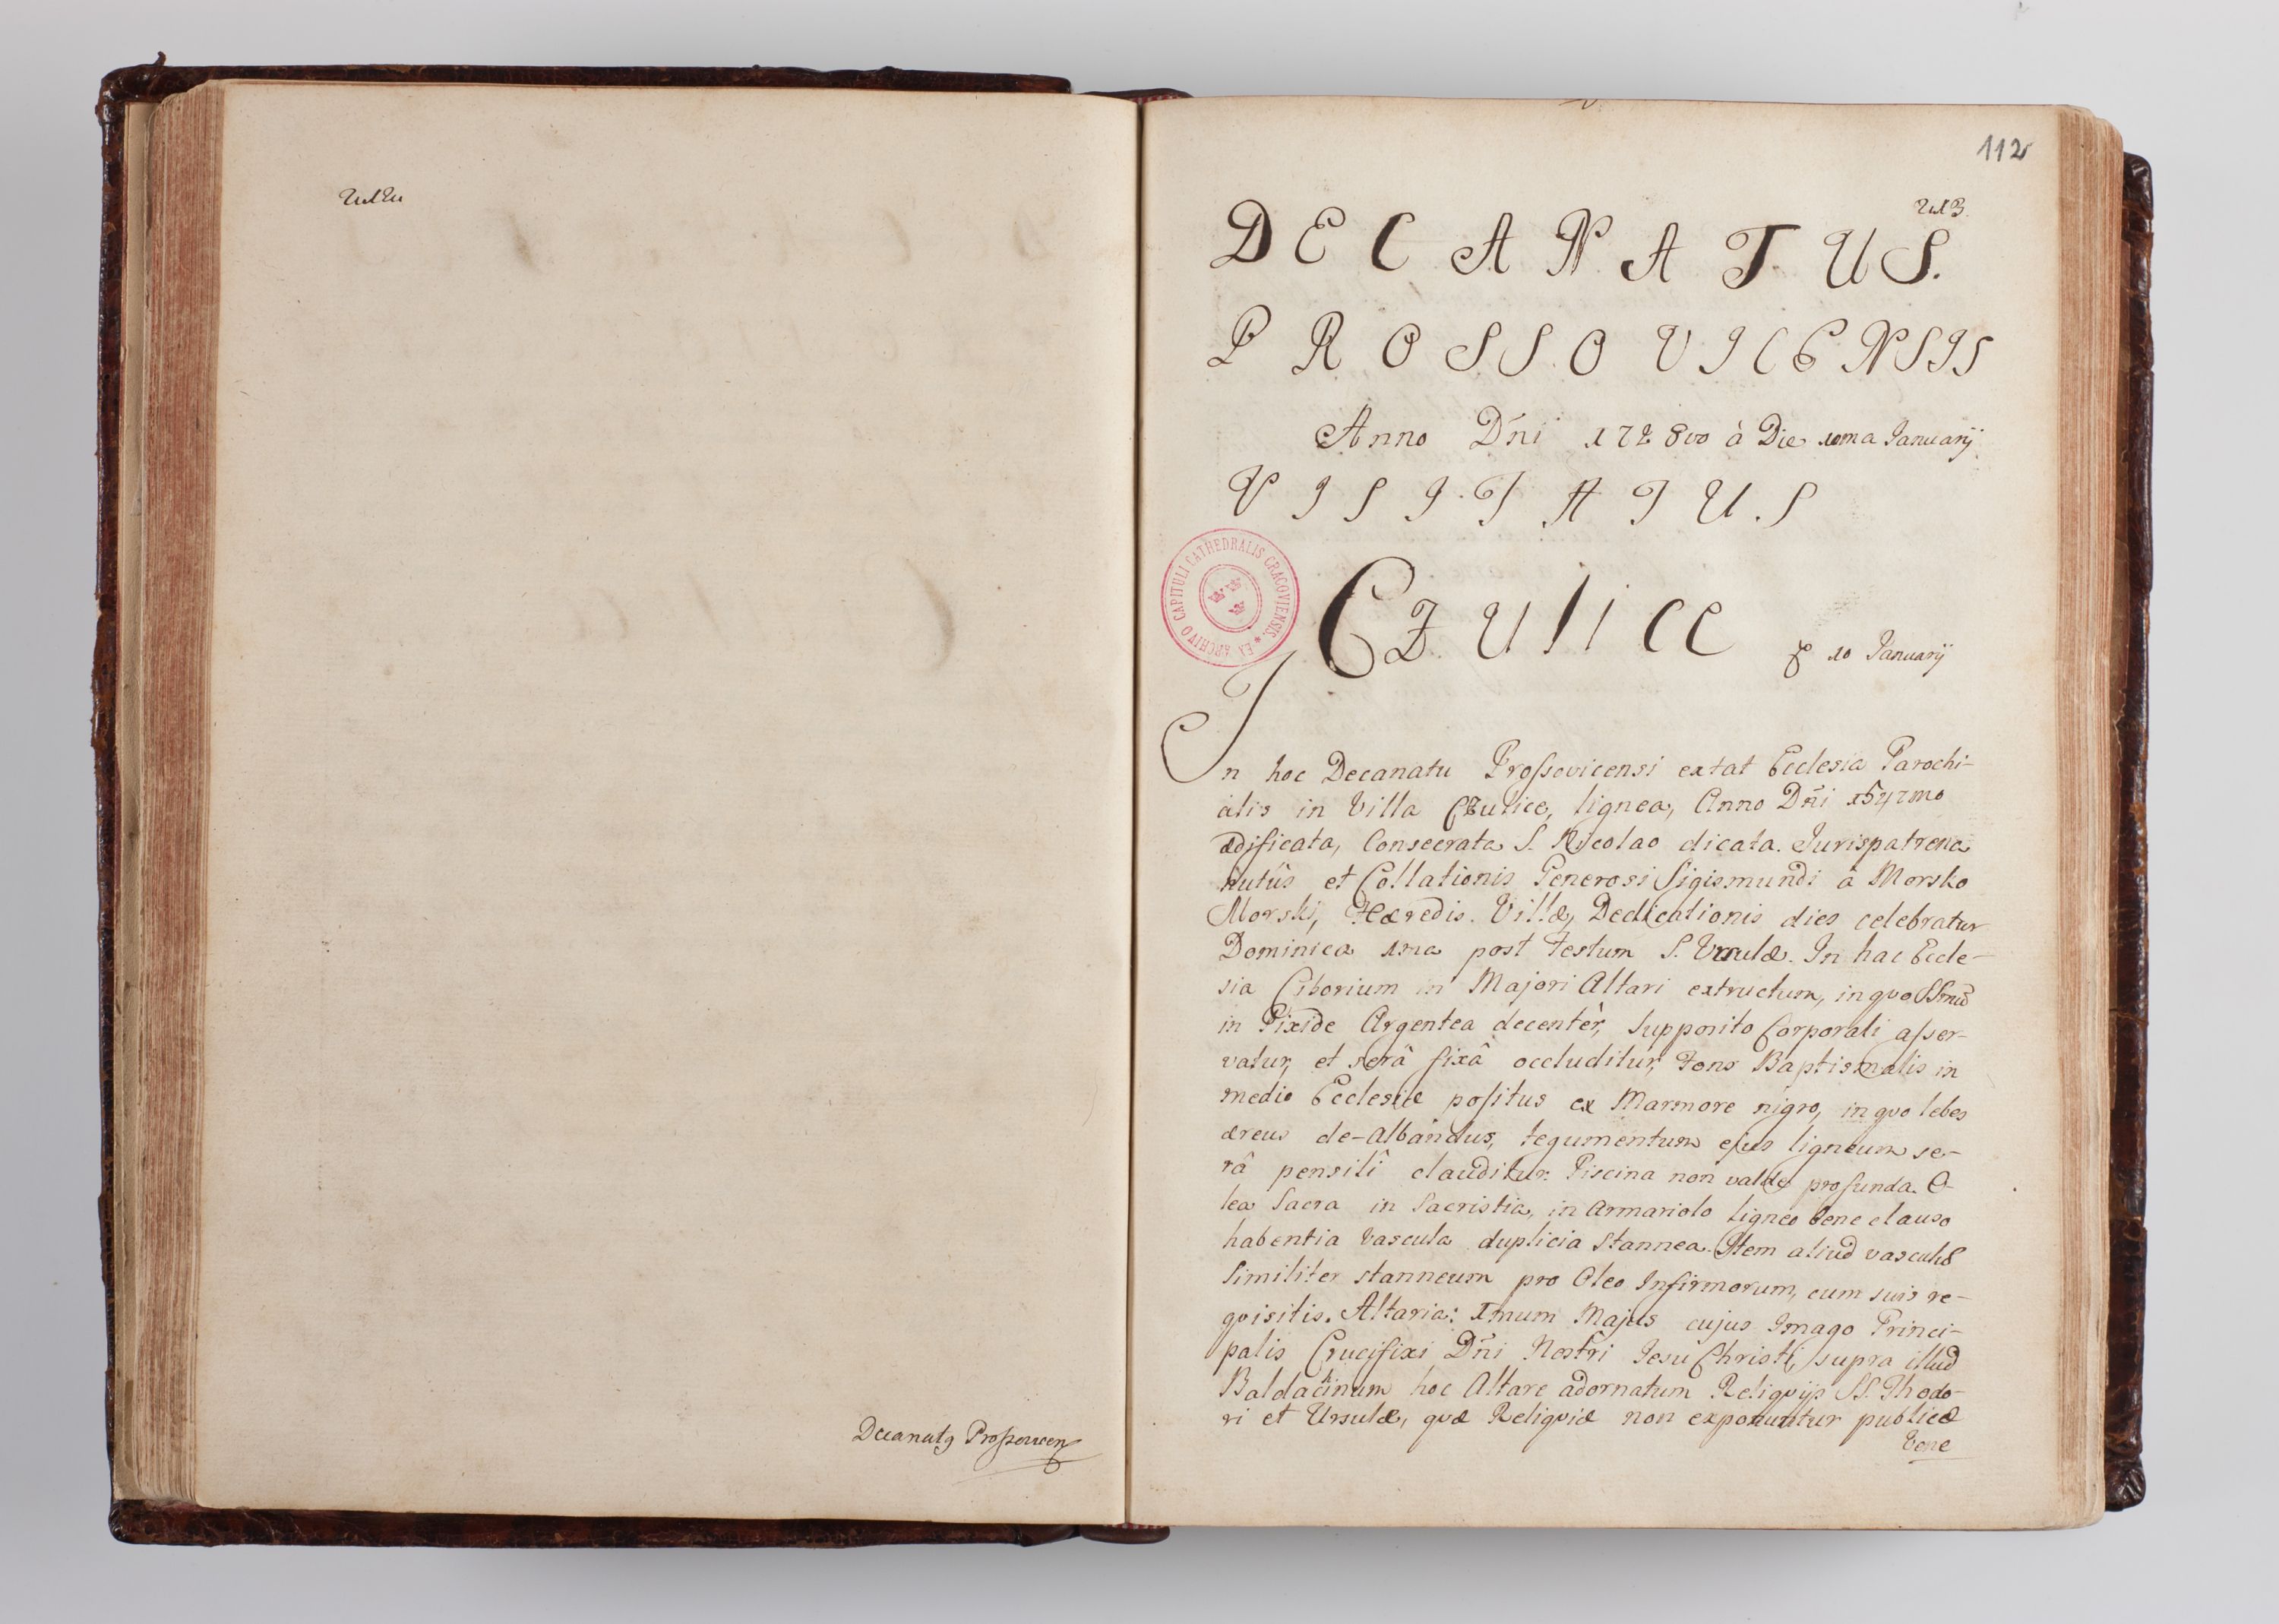 Decanatq Proszovicen
112
213
DECANATUS.
PROSSOVICENSIS
Anno Dñi 1728vo à Die 10ma Januarij
VISITATUS
EX ARCHIVO CAPITULI CATHEDRALIS CRACOVIENSIS
CZulice
10 Januarij
In hoc Decanatu Proſsovicensi extat Ecclesia Parochi-
alis in Villa CZulice, lignea, Anno Dñi 1542mo
ædificata, Consecrata S. Nicolao dicata. Jurispatrona
tutûs et Collationis Generosi Sigismundi à Morsko
Morski, Hæredis Villæ, Dedicationis dies celebratur
Dominica 1ma post Festum S. Ursulæ. In hac Eccle-
sia Ciborium in Majori Altari extructum, in qvo SSmũ
in Pixide Argentea decentèr, supposito Corporali aſser-
vatur, et serâ fixâ occluditur, Fons Baptismalis in
medio Ecclesiæ poſitus ex Marmore nigro, in qvo lebes
æreus de-Albandus, tegumentum ejus ligneum se-
râ pensili clauditur. Piscina non valde profunda. O-
lea Sacra in Sacristia, in Armariolo ligneo bene clauso
habentia Vascula duplicia Stannea. Item aliud vasculũ
Similiter stanneum pro Oleo Infirmorum, cum suis re-
qvisitis. Altaria: 1mum Majus cujus Imago Princi-
palis Crucifixi Dñi Nostri Jesu Christi, supra illud
Baldachinum hoc Altare adornatum Reliqvijs SS. Thodo-
ri et Ursulæ, qvæ Reliqviæ non exponuntur publicæ
bene